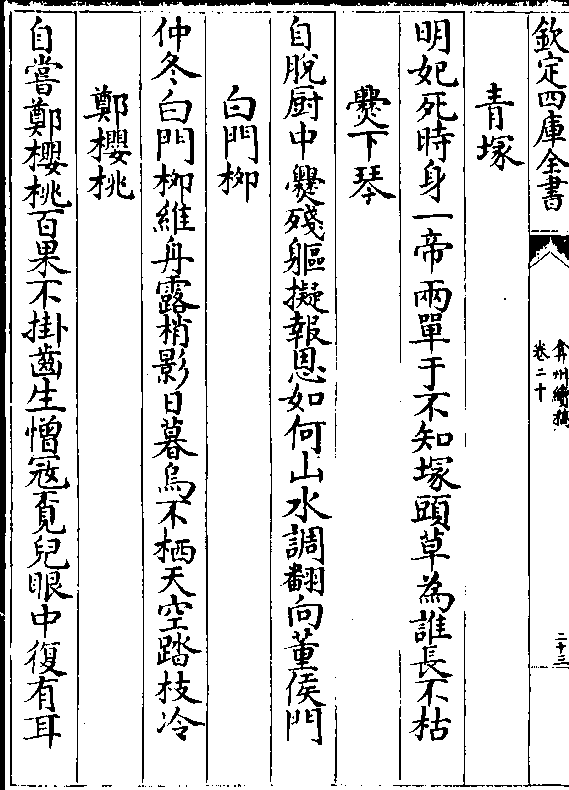 欽定四庫全書
弇州續稿
卷二十
二十三
青塚
明妃死時身一帝兩單于不知塚頭草為誰長不枯
爨下琴
自脫厨中爨殘軀擬報恩如何山水調翻向董侯門
白門栁
仲冬白門栁維舟露梢影日暮烏不栖天空踏枝冷
鄭櫻桃
自嘗鄭櫻桃百果不掛齒生憎冦覔兒眼中復有耳